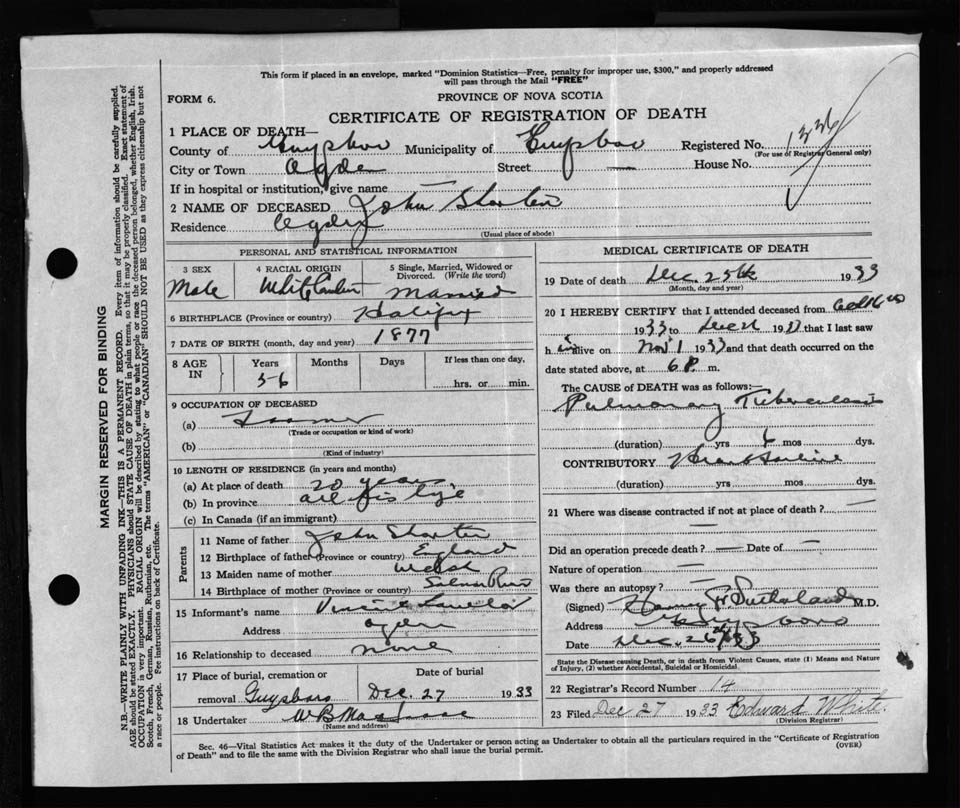 This form if placed in an envelope, marked "Dominion Statistics—Free, penalty for improper use, $300," and properly addressed
will pass through the Mail "FREE"
FORM 6.
PROVINCE OF NOVA SCOTIA
CERTIFICATE OF REGISTRATION OF DEATH
1 PLACE OF DEATH—
County of Guysboro Municipality of Guysboro Registered No. 1336
(For use of Registrar General only)
City or Town Ogden Street — House No.
If in hospital or institution, give name —
2 NAME OF DECEASED John
Residence Ogden
(Usual place of abode)
PERSONAL AND STATISTICAL INFORMATION
3 SEX
Male
4 RACIAL ORIGIN
White
5 Single, Married, Widowed or
Divorced. (Write the word)
Married
6 BIRTHPLACE (Province or country) Halifax
7 DATE OF BIRTH (month, day and year) 1877
8 AGE IN
Years Months Days
56
If less than one day,
hrs. or min.
9 OCCUPATION OF DECEASED
(a) Farmer
(Trade or occupation or kind of work)
(b)
(Kind of industry)
10 LENGTH OF RESIDENCE (in years and months)
(a) At place of death 20 years
(b) In province all his life
(c) In Canada (if an immigrant)
Parents
11 Name of father John
12 Birthplace of father (Province or country) England
13 Maiden name of mother Welsh
14 Birthplace of mother (Province or country) Salmon River
15 Informant's name
Address Ogden
16 Relationship to deceased none
17 Place of burial, cremation or
removal Guysboro
Date of burial
Dec. 27 1933
18 Undertaker W B
(Name and address)
MEDICAL CERTIFICATE OF DEATH
19 Date of death Dec. 25th 1933
(Month, day and year)
20 I HEREBY CERTIFY that I attended deceased from
1933 to 19 that I last saw
h im alive on Nov 1 1933 and that death occurred on the
date stated above, at 6 P. m.
The CAUSE of DEATH was as follows:—
Pulmonary Tuberculosis
(duration) yrs 6 mos dys.
CONTRIBUTORY Heart Failure
(duration) yrs. mos. dys.
21 Where was disease contracted if not at place of death? —
—
Did an operation precede death? — Date of —
Nature of operation —
Was there an autopsy? —
(Signed) Sutherland M.D.
Address Guysboro
Date Dec. 26/33
State the Disease causing Death, or in death from Violent Causes, state (1) Means and Nature
of Injury, (2) whether Accidental, Suicidal or Homicidal.
22 Registrar's Record Number 14
23 Filed Dec 27 1933 Edward White
(Division Registrar)
Sec. 46—Vital Statistics Act makes it the duty of the Undertaker or person acting as Undertaker to obtain all the particulars required in the "Certificate of Registration
of Death" and to file the same with the Division Registrar who shall issue the burial permit.
(OVER)
MARGIN RESERVED FOR BINDING
N.B.—WRITE PLAINLY WITH UNFADING INK—THIS IS A PERMANENT RECORD. Every item of information should be carefully supplied.
AGE should be stated EXACTLY. PHYSICIANS should STATE CAUSE OF DEATH in plain terms, so that it may be properly classified. Exact statement of
OCCUPATION is very important. RACIAL ORIGIN will be described by stating to what people or race the deceased person belonged, whether English, Irish,
Scotch, French, German, Russian, Ruthenian, etc. The terms "AMERICAN" or "CANADIAN" SHOULD NOT BE USED as they express citizenship but not
a race or people. Fee instructions on back of Certificate.